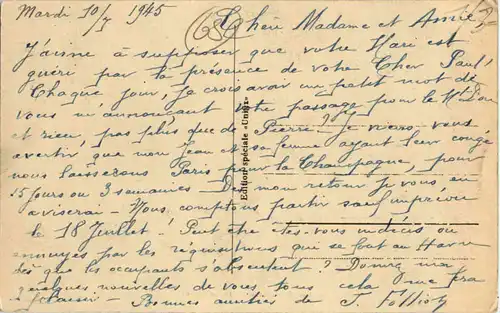 Mardi 10/7 1945
Chère Madame et Amie
J'arrive à supposer que votre Mari est
guéri par la présence de votre Cher Paul!
Chaque jour, je crois avoir un petit mot de
vous m'annonçant votre passage pour le
et rien, pas plus que de Pierre? Je viens vous
avertir que mon Jean et sa femme ayant leur congé
nous laisserons Paris pour la Champagne, pour
15 jours ou 3 semaines. De mon retour je vous en
aviserai - Nous comptons partir sauf imprévu
le 18 Juillet! Peut être êtes-vous indécis ou
ennuyés par les réquisitions qui se font au Havre
dès que les occupants s'absentent? Donnez moi
quelques nouvelles de vous tous cela me fera
plaisir - Bonnes amitiés de J.
Edition spéciale «Unix»